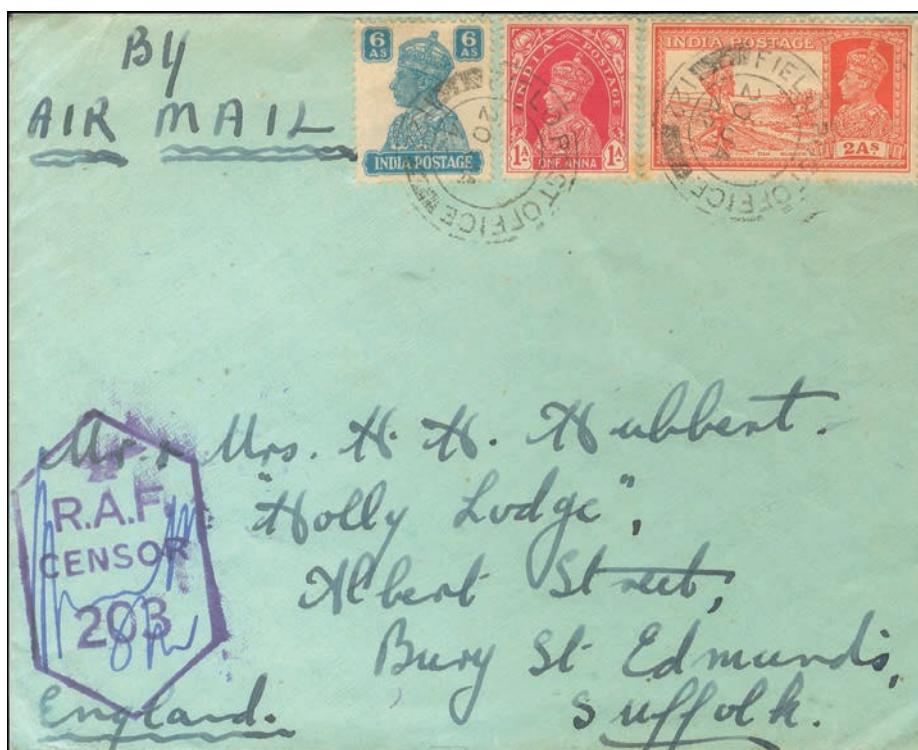 By
AIR MAIL
6 AS 6 AS
INDIA POSTAGE
INDIA POSTAGE
1A ONE ANNA 1A
INDIA POSTAGE
2AS
FIELD POST OFFICE
20
FIELD POST OFFICE
20
Mr. & Mrs. H. H. Hubbert.
"Holly Lodge",
Albert Street,
Bury St Edmunds,
Suffolk.
England.
R.A.F.
CENSOR
203